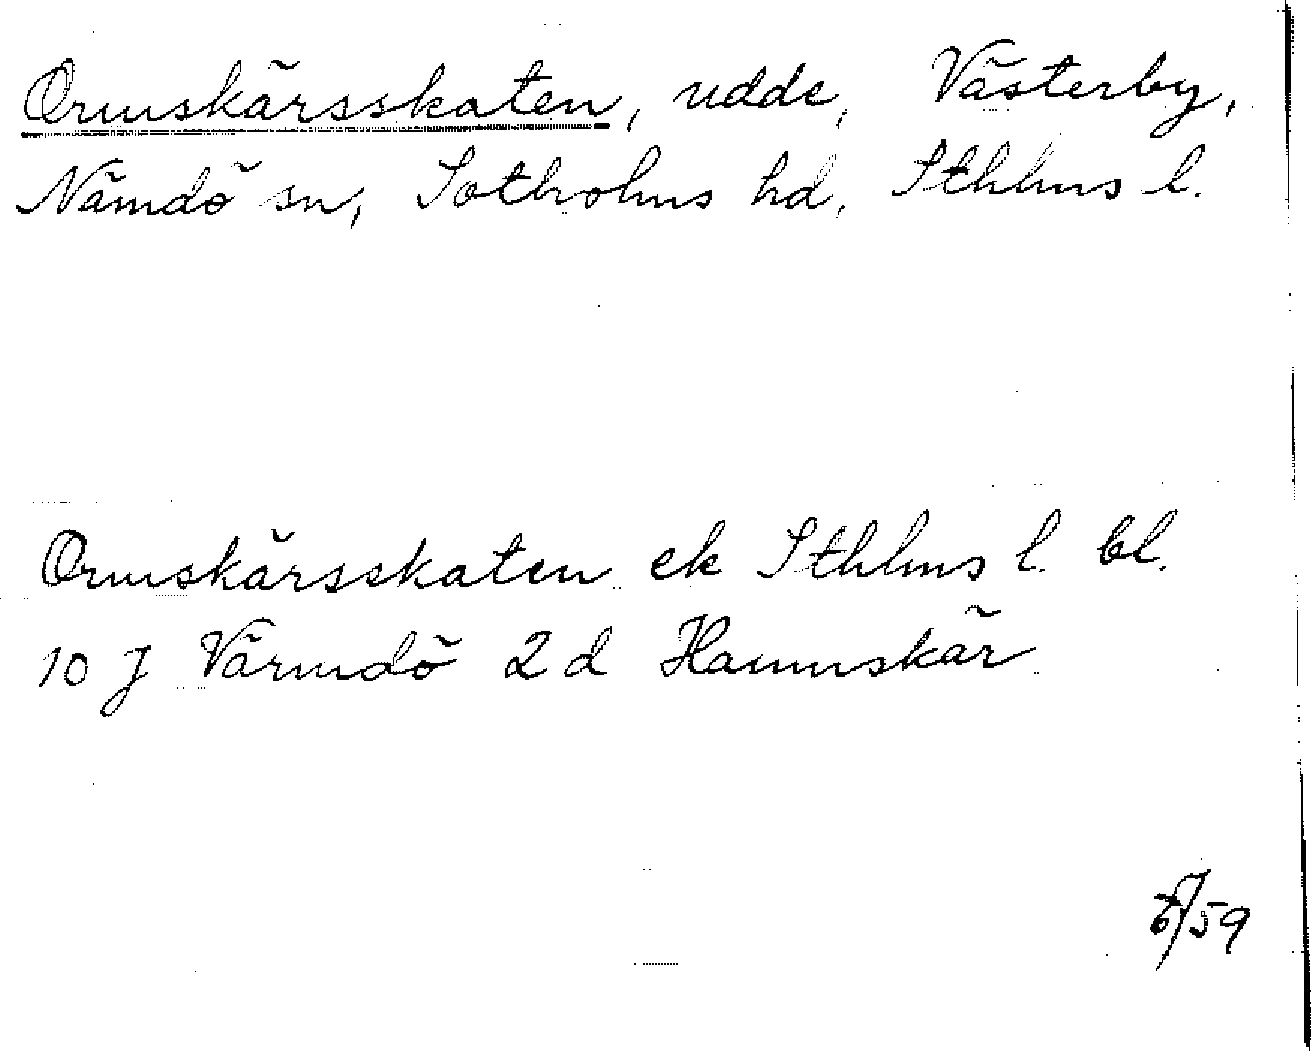 Ormskärsskaten, udde, Västerby,
Nämdö sn, Sotholms hd, Sthlms l.
Ormskärsskaten ek Sthlms l. bl.
10 J Värmdö 2 d Hamnskär
/59